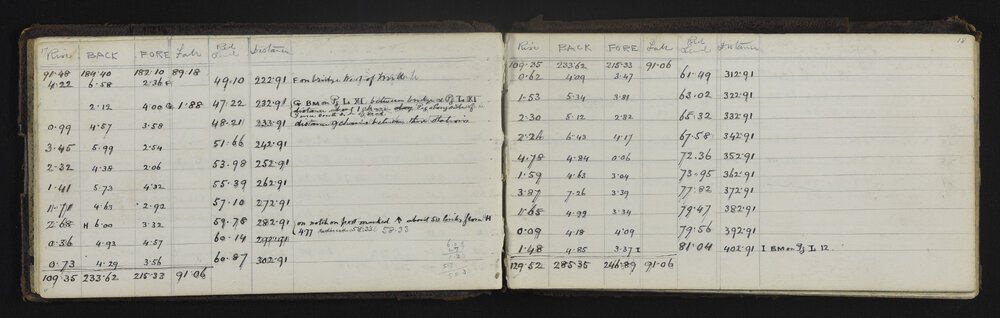 17 Rise BACK FORE Fall Red Level Distance
91.48 184.40 182.10 89.18
4.22 6.58 2.36 F 49.10 222.91 E on bridge West of
2.12 4.00 G 1.88 47.22 232.91 G BM on Pg L XI between bridge & Pg L XI
distance about 1 chain
0.99 4.57 3.58 48.21 233.91 distance 9 chains between this station
3.45 5.99 2.54 51.66 242.91
2.32 4.38 2.06 53.98 252.91
1.41 5.73 4.32 55.39 262.91
1.71 4.63 2.92 57.10 272.91
2.68 H 6.00 3.32 59.78 282.91 on notch on post marked ↑ about 50 links from H
4.77 reduced 58.33 58.33
0.36 4.93 4.57 60.14 292.91
0.73 4.29 3.56 60.87 302.91
109.35 233.62 215.33 91.06
Rise BACK FORE Fall Red Level Distance 18
109.35 233.62 215.33 91.06
0.62 4.09 3.47 61.49 312.91
1.53 5.34 3.81 63.02 322.91
2.30 5.12 2.82 65.32 332.91
2.26 6.43 4.17 67.58 342.91
4.78 4.84 0.06 72.36 352.91
1.59 4.63 3.04 73.95 362.91
3.87 7.26 3.39 77.82 372.91
1.65 4.99 3.34 79.47 382.91
0.09 4.18 4.09 79.56 392.91
1.48 4.85 3.37 I 81.04 402.91 I BM on Pg L 12
129.52 285.35 246.89 91.06